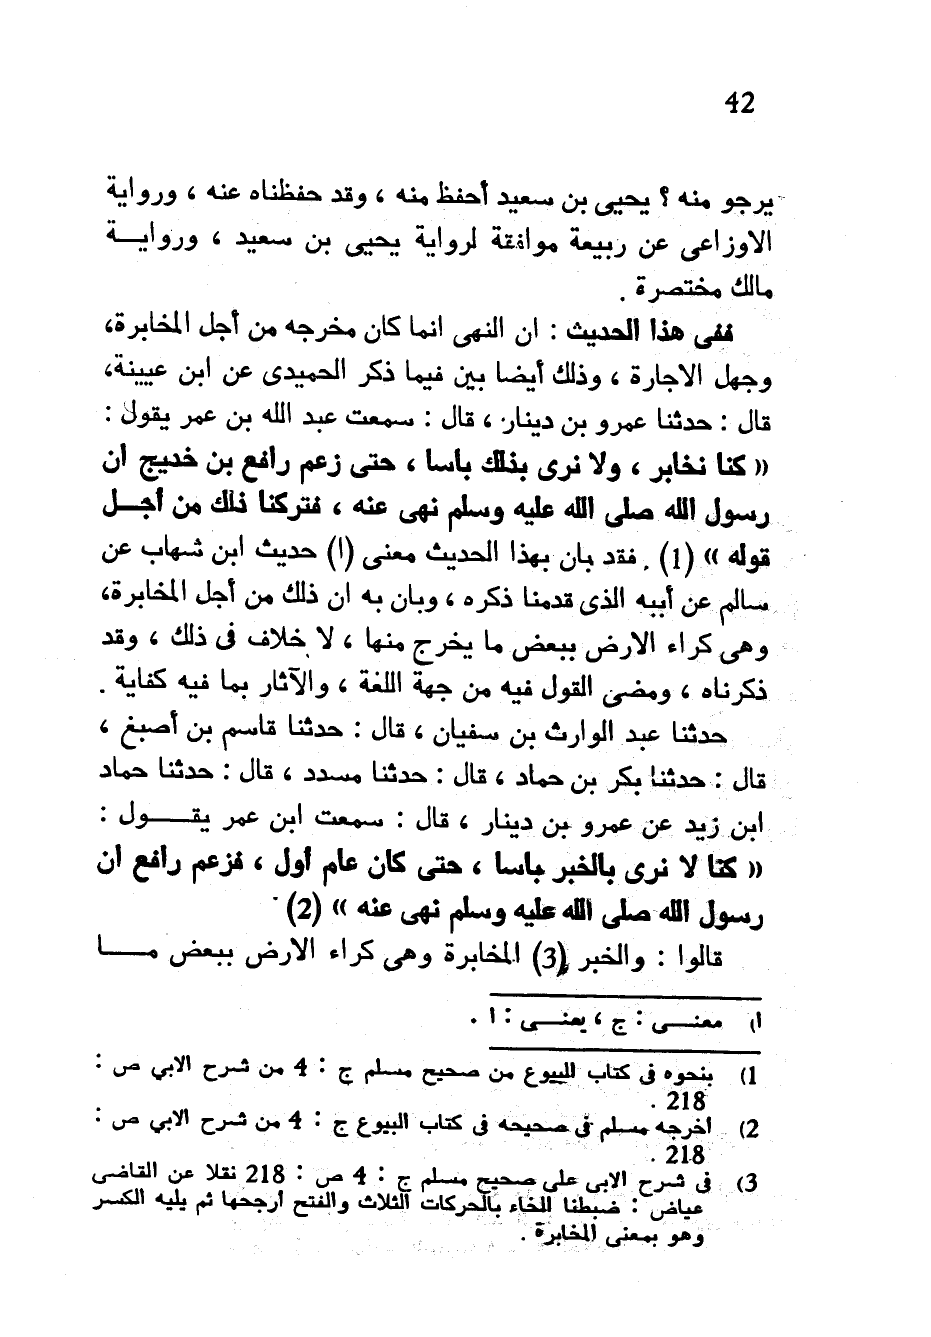 42
يرجو منه ؟ يحيى بن سعيد أحفظ منه ، وقد حفظناه عنه ، ورواية
الاوزاعى عن ربيعة موافقة لرواية يحيى بن سعيد ، وروايـــة
مالك مختصرة .
ففى هذا الحديث : ان النهى انما كان مخرجه من أجل المخابرة،
وجهل الاجارة ، وذلك أيضا بين فيما ذكر الحميدى عن ابن عيينة،
قال : حدثنا عمرو بن دينار ، قال : سمعت عبد الله بن عمر يقول :
« كنا نخابر ، ولا نرى بذلك باسا ، حتى زعم رافع بن خديج ان
رسول الله صلى الله عليه وسلم نهى عنه ، فتركنا ذلك من أجـــل
قوله » (1) . فقد بان بهذا الحديث معنى (ا) حديث ابن شهاب عن
سالم عن أبيه الذى قدمنا ذكره ، وبان به ان ذلك من أجل المخابرة،
وهى كراء الارض ببعض ما يخرج منها ، لا خلاف فى ذلك ، وقد
ذكرناه ، ومضى القول فيه من جهة اللغة ، والآثار بما فيه كفاية .
حدثنا عبد الوارث بن سفيان ، قال : حدثنا قاسم بن أصبغ ،
قال : حدثنا بكر بن حماد ، قال : حدثنا مسدد ، قال : حدثنا حماد
ابن زيد عن عمرو بن دينار ، قال : سمعت ابن عمر يقـــول :
« كنا لا نرى بالخبر باسا ، حتى كان عام أول ، فزعم رافع ان
رسول الله صلى الله عليه وسلم نهى عنه » (2)
قالوا : والخبر (3) المخابرة وهى كراء الارض ببعض مـــا
ا) معنـــى : ج ، يعنـــى : ا .
1) بنحوه فى كتاب البيوع من صحيح مسلم ج : 4 من شرح الابي ص :
218 .
2) اخرجه مسلم فى صحيحه فى كتاب البيوع ج : 4 من شرح الابي ص :
218 .
3) فى شرح الابى على صحيح مسلم ج : 4 ص : 218 نقلا عن القاضى
عياض : ضبطنا الخاء بالحركات الثلاث والفتح ارجحها ثم يليه الكسر
وهو بمعنى المخابرة .